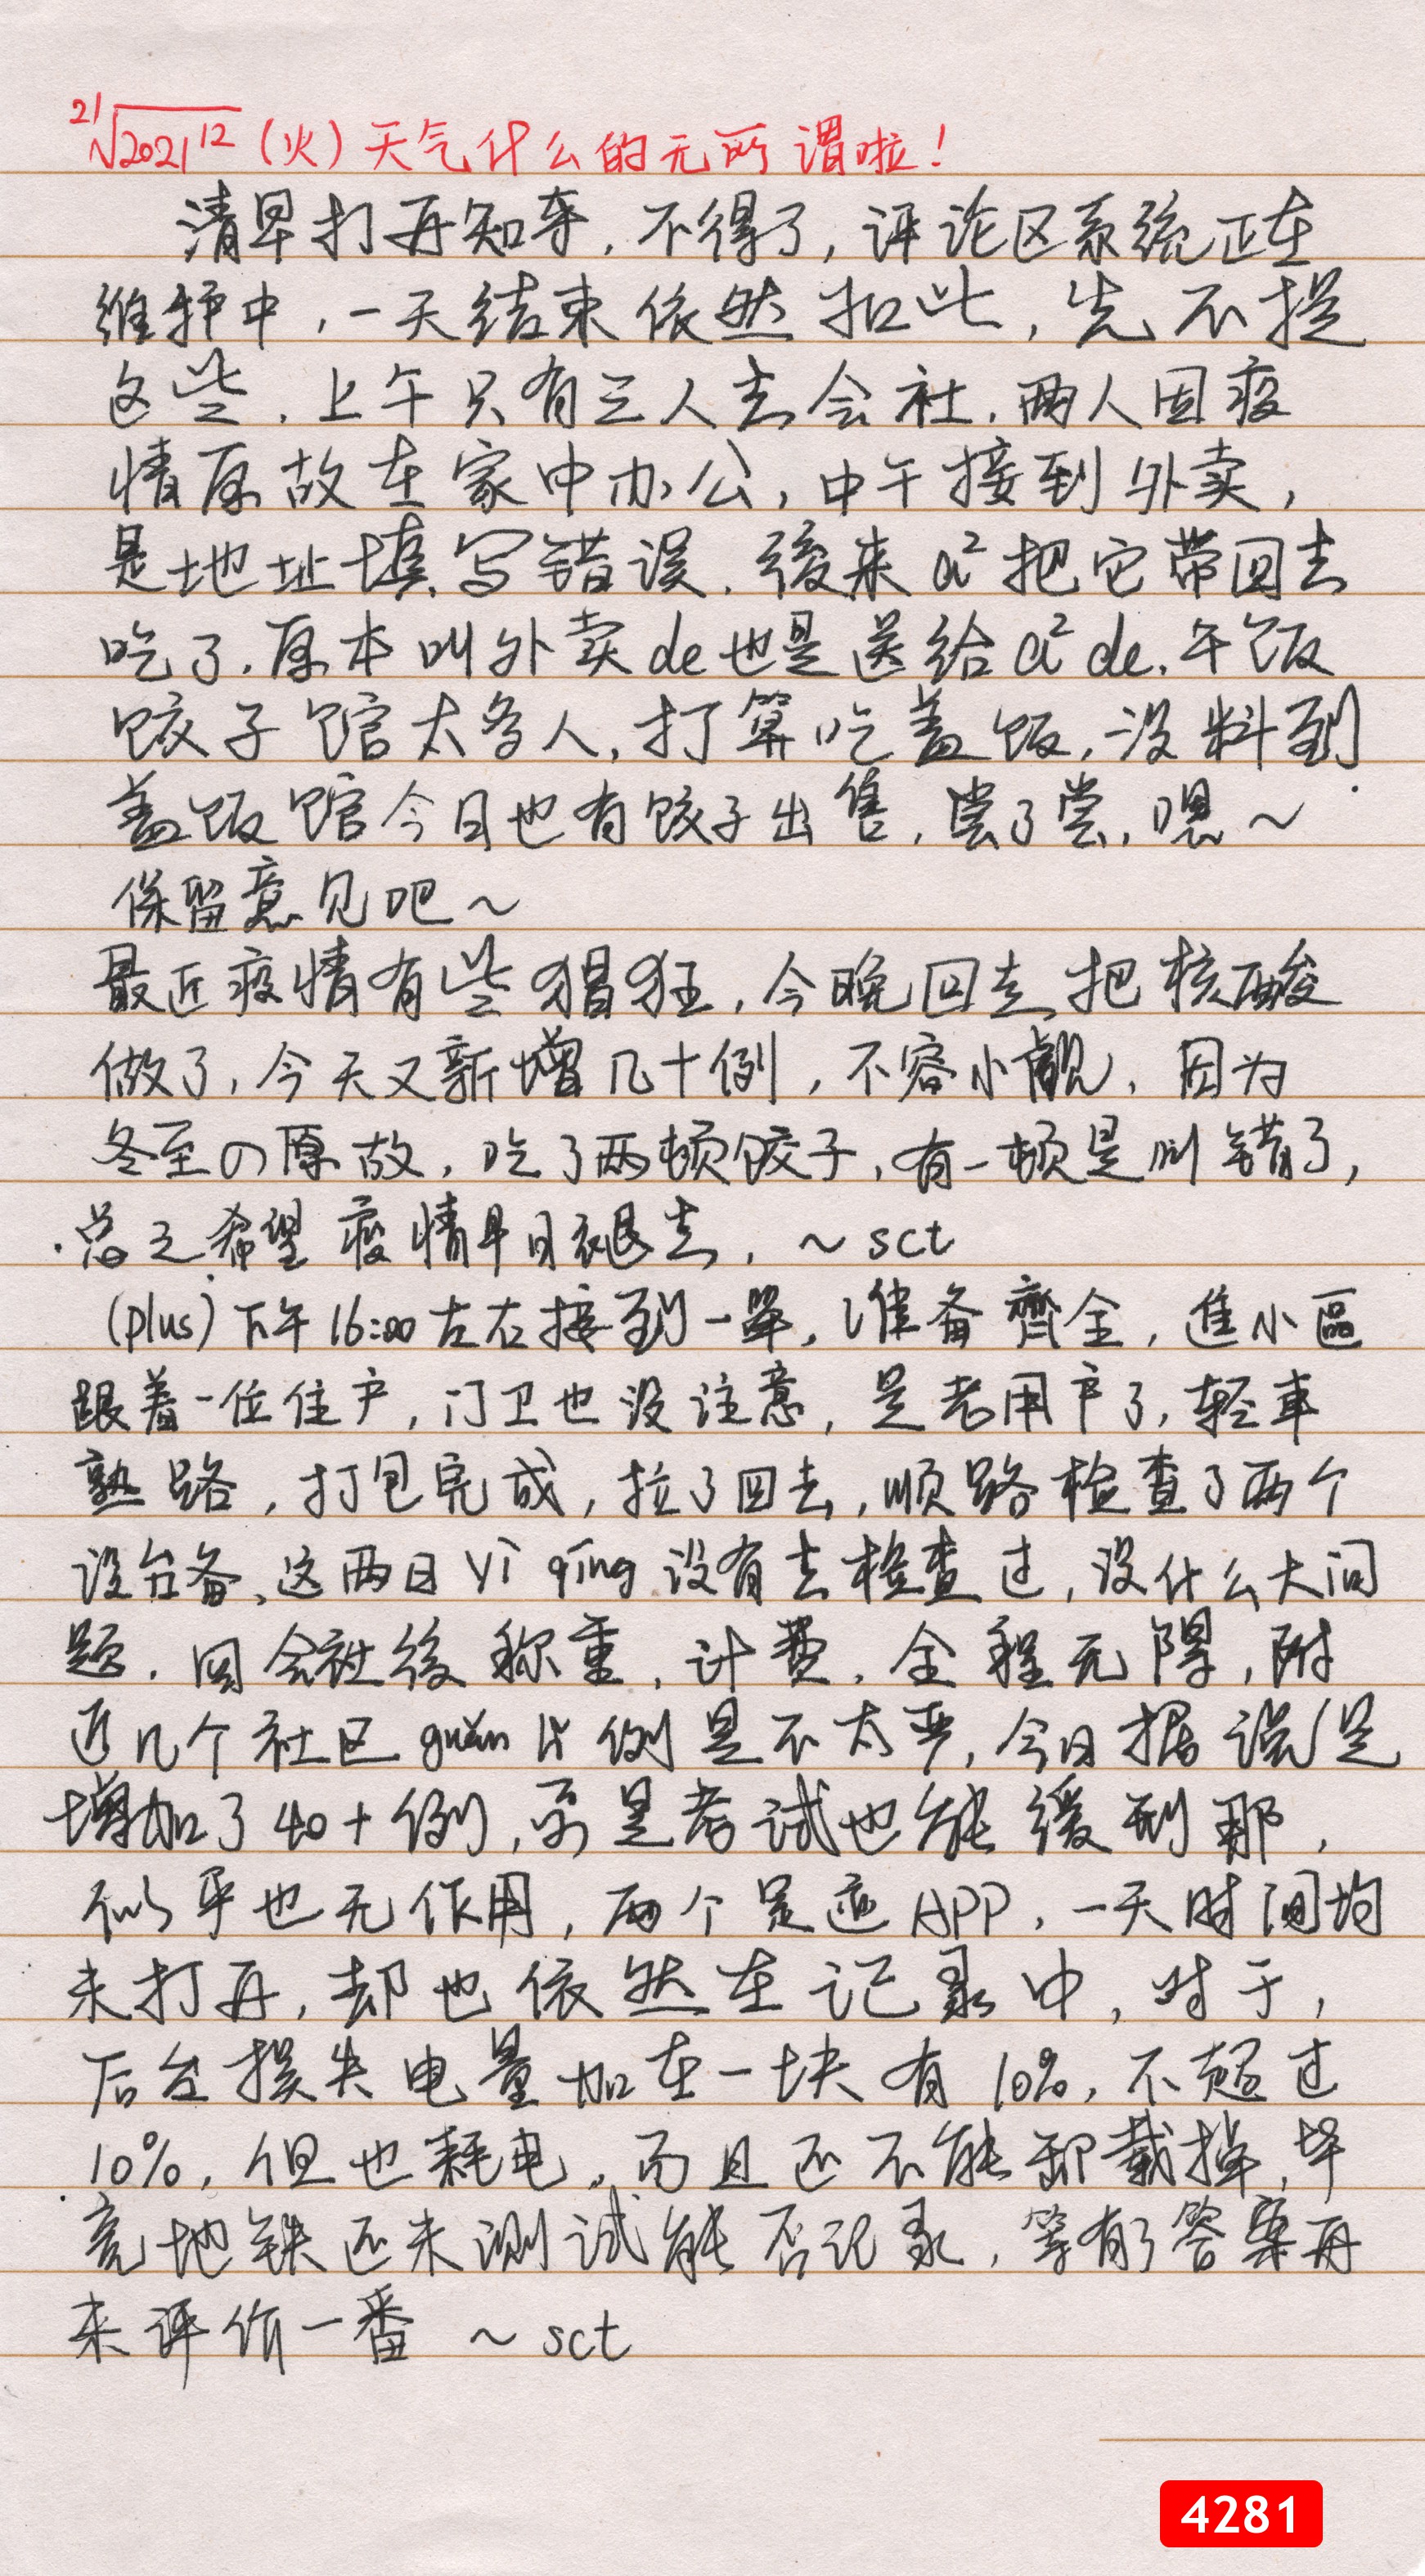 ²¹√2021¹² (火) 天气什么的无所谓啦!
清早打开知乎, 不得了, 评论区系统正在
维护中, 一天结束依然如此, 先不提
这些, 上午只有三人去会社, 两人因疫
情原故在家中办公, 中午接到外卖,
是地址填写错误, 後来a²把它带回去
吃了, 原本叫外卖de也是送给a²de, 午饭
饺子馆太多人, 打算吃盖饭, 没料到
盖饭馆今日也有饺子出售, 尝了尝, 嗯~
保留意见吧~
最近疫情有些猖狂, 今晚回去把核酸
做了, 今天又新增几十例, 不容小觑, 因为
冬至の原故, 吃了两顿饺子, 有一顿是叫错了,
总之希望疫情早日褪去, ~sct
(plus)下午16:00左右接到一单, 准备齊全, 進小區
跟着一位住户, 门卫也没注意, 是老用户了, 轻车
熟路, 打包完成, 拉了回去, 顺路检查了两个
设备, 这两日yì qíng没有去检查过, 没什么大问
题, 回会社後称重, 计费, 全程无障, 附
近几个社区guān 例是不太严, 今日据说是
增加了40+例, 是考试也能缓到那,
似乎也无作用, 两个是 APP, 一天时间均
未打开, 却也依然在记录中, 对于,
后台损失电量加在一块有10%, 不超过
10%, 但也耗电, 而且还不能卸载掉, 毕
竟地铁还未测试能否记录, 等有了答案再
来评价一番 ~sct
4281